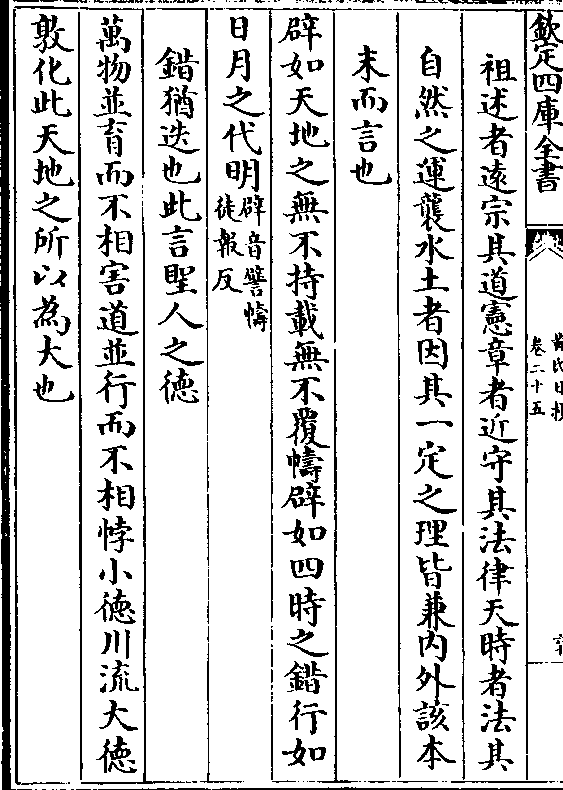 欽定四庫全書
黄氏日抄
卷二十五
祖述者遠宗其道憲章者近守其法律天時者法其
自然之運襲水土者因其一定之理皆兼内外該本
末而言也
辟如天地之無不持載無不覆幬辟如四時之錯行如
日月之代明辟音譬幬
徒報反
錯猶迭也此言聖人之德
萬物並育而不相害道並行而不相悖小德川流大德
敦化此天地之所以為大也